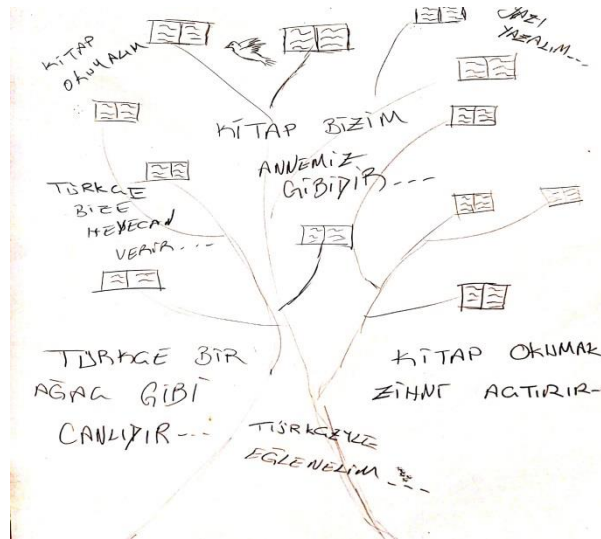 KİTAP
OKUYALIM
YAZI
YAZALIM---
KİTAP BİZİM
ANNEMİZ
GİBİDİR----
TÜRKÇE
BİZE
HEYECAN
VERİR---
TÜRKÇE BİR
AĞAÇ GİBİ
CANLIDIR---
KİTAP OKUMAK
ZİHNİ AÇTIRIR-
TÜRKÇEYLE
EĞLENELİM---